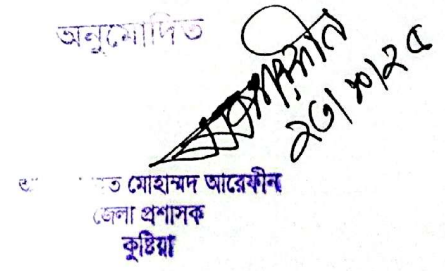 অনুমোদিত
২৩/১০/২৫
মোহাম্মদ আরেফীন
জেলা প্রশাসক
কুষ্টিয়া